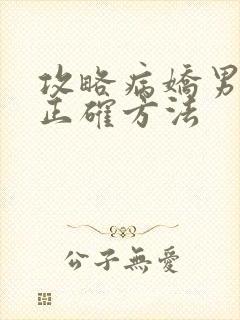 攻略病嬌男
正確方法
公子無愛